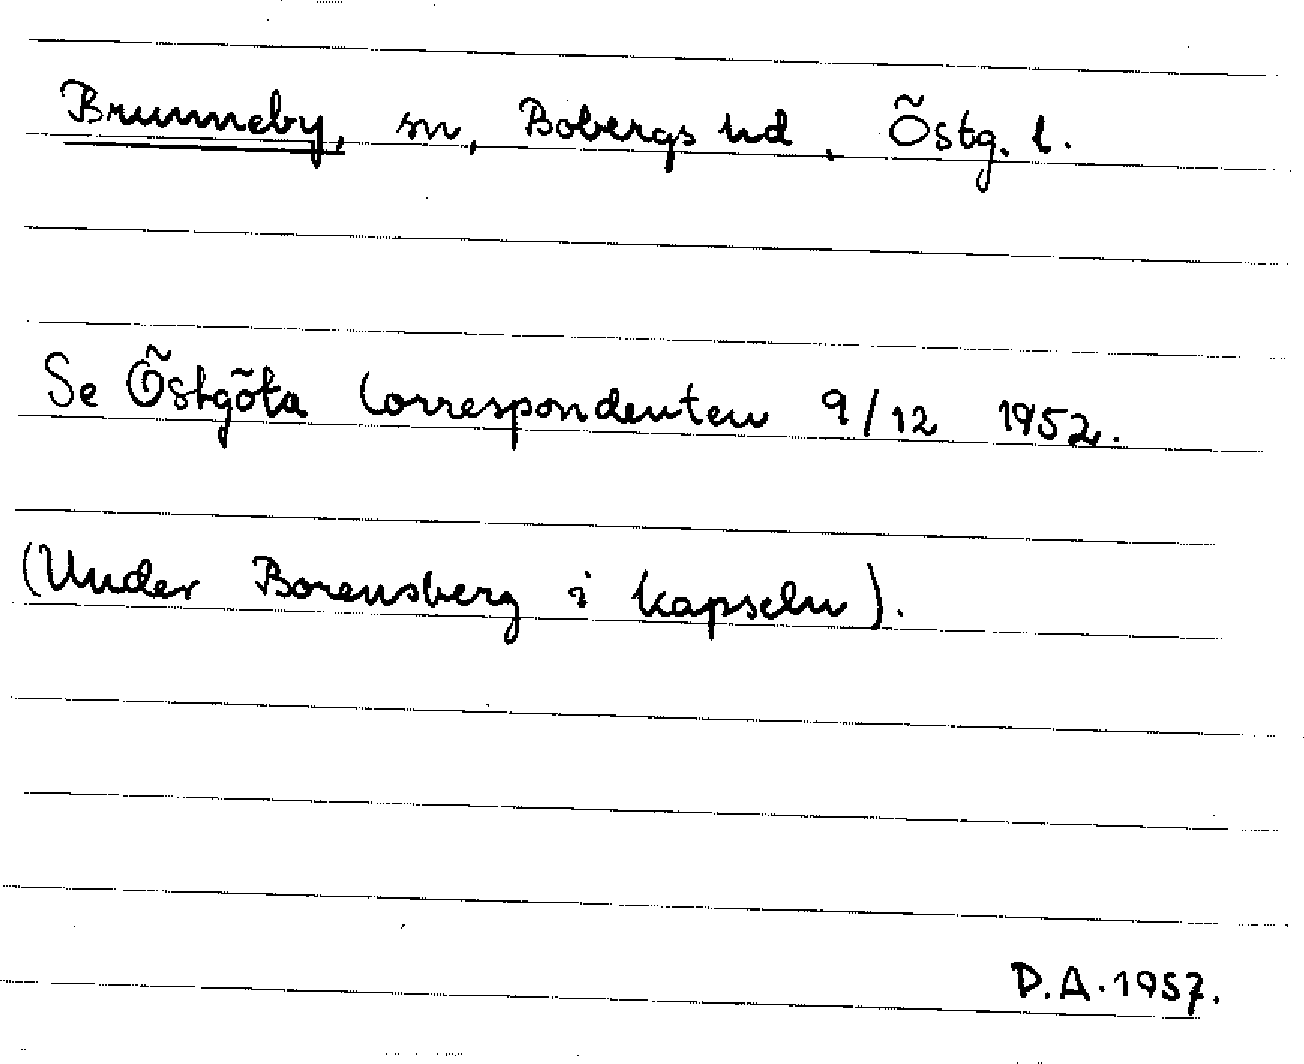 Brunneby, sn, Bobergs hd, Östg. l.
Se Östgöta Correspondenten 9/12 1952.
(Under Borensberg i kapseln).
D.A. 1957.